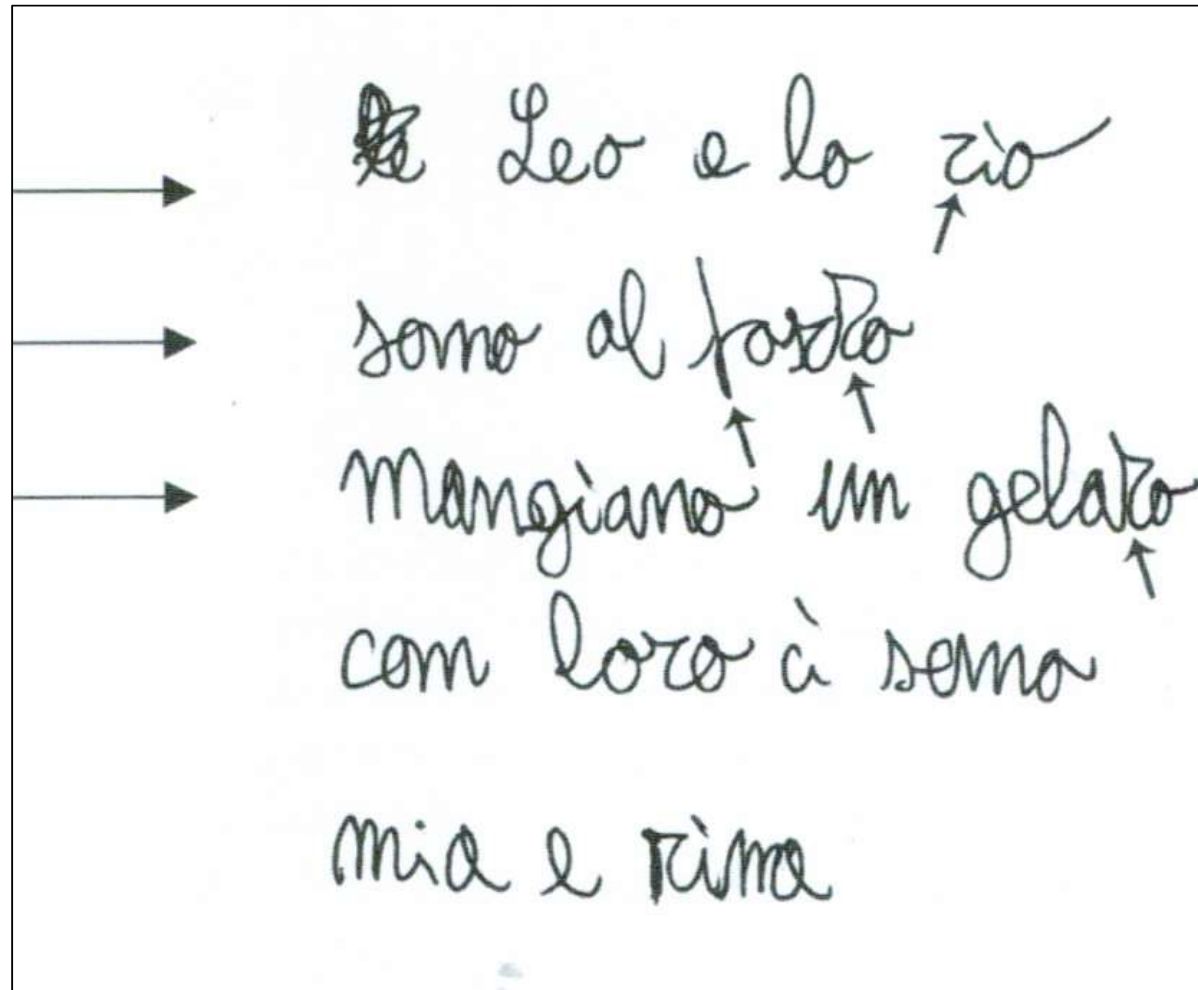 Leo e lo zio
sono al pasto
mangiano un gelato
con loro ci sono
mia e Tina